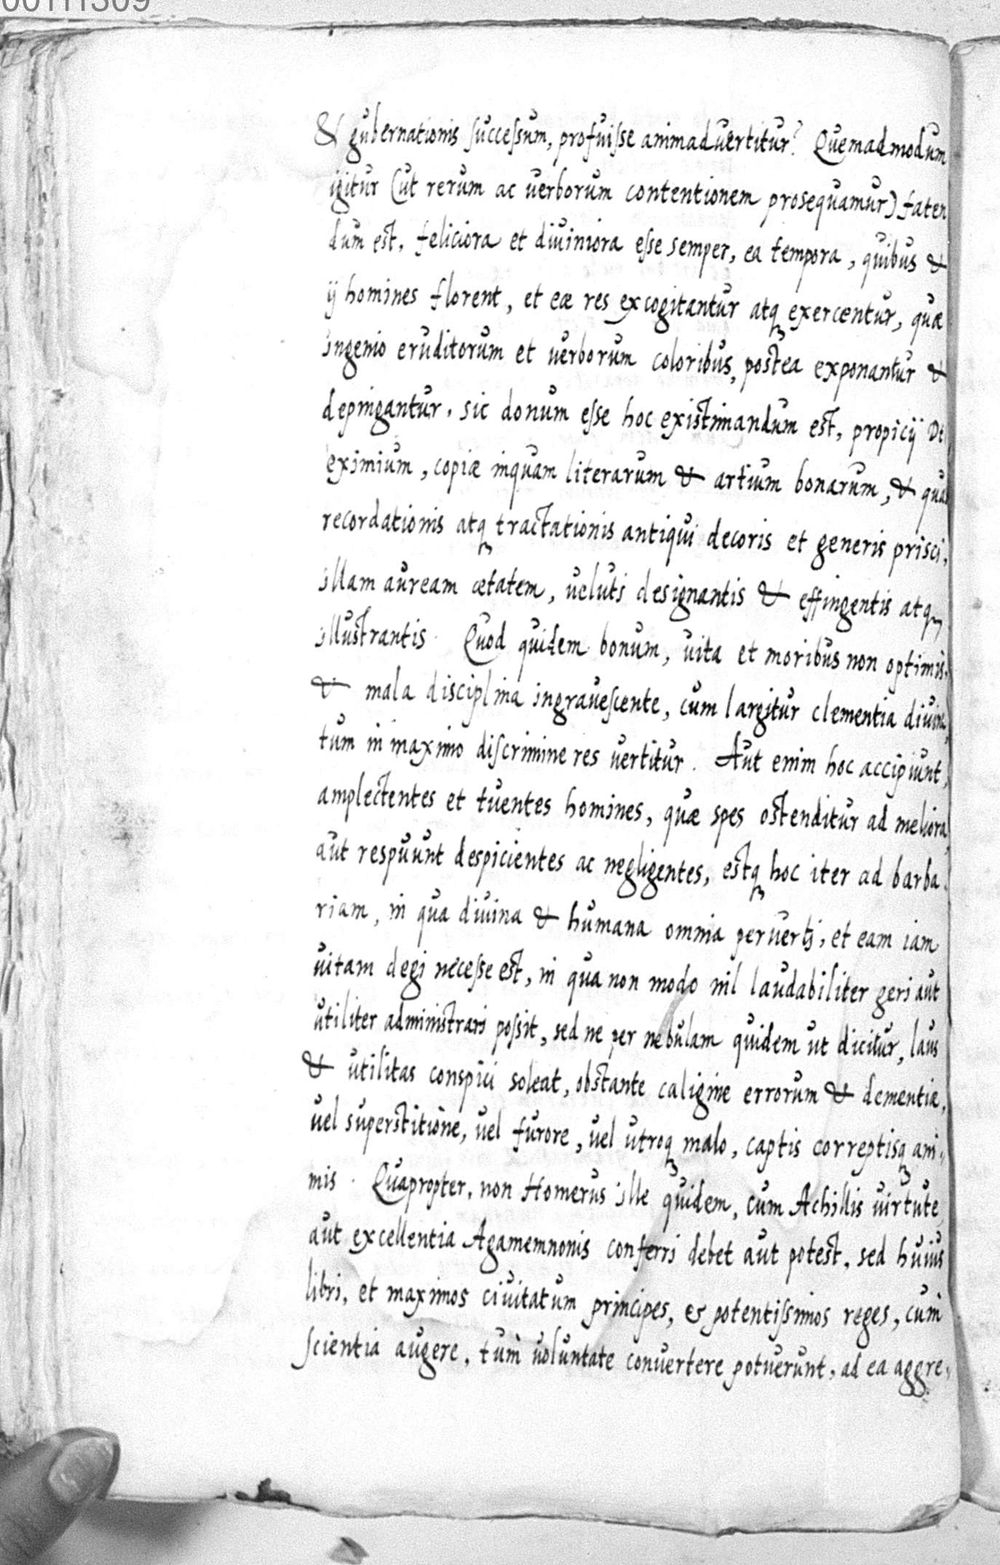 00111309
& gubernationis successum, profuisse animadvertitur? Quemadmodum
igitur (ut rerum ac verborum contentionem prosequamur) faten
dum est, feliciora et diuiniora esse semper, ea tempora, quibus &
ij homines florent, et eæ res excogitantur atq exercentur, quæ
ingenio eruditorum et verborum coloribus, postea exponantur &
depingantur, sic donum esse hoc existimandum est, propicij De
eximium, copiæ inquam literarum & artium bonarum, & qua
recordationis atq tractationis antiqui decoris et generis prisci,
illam auream ætatem, ueluti designantis & effingentis atq
illustrantis. Quod quidem bonum, uita et moribus non optimis,
& mala disciplina ingrauescente, cum largitur clementia diuina,
tum in maximo discrimine res vertitur. Aut enim hoc accipiunt,
amplectentes et tuentes homines, quæ spes ostenditur ad meliora,
aut respuunt despicientes ac negligentes, estq hoc iter ad barba
riam, in qua diuina & humana omnia peruerti, et eam iam
uitam degi necesse est, in qua non modo nil laudabiliter geri aut
utiliter administrari possit, sed ne per nebulam quidem ut dicitur, laus
& utilitas conspici soleat, obstante caligine errorum & dementiæ,
uel superstitione, uel furore, uel utroq malo, captis correptisq ani,
mis. Quapropter, non Homerus ille quidem, cum Achillis uirtute
aut excellentia Agamemnonis conferri debet aut potest, sed huius
libri, et maximos ciuitatum principes, & potentissimos reges, cum
scientia augere, tum uoluntate conuertere potuerunt, ad ea aggre,